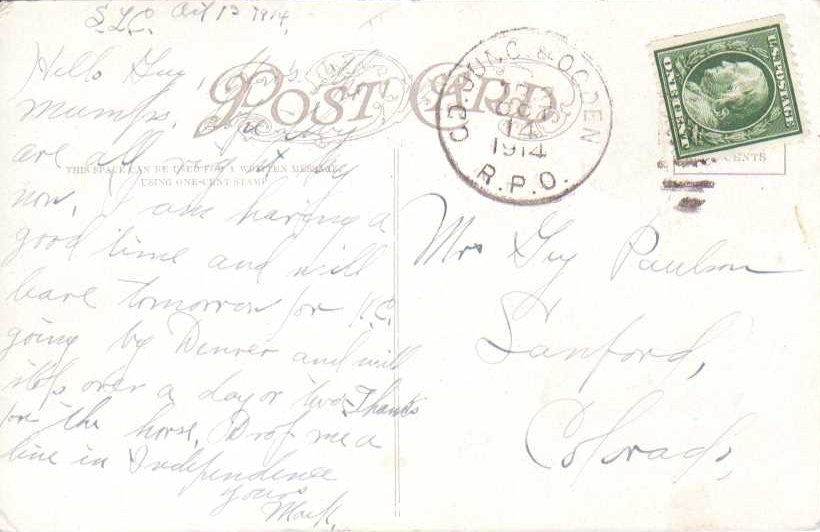 S.L.C. Oct 13 1914.
POST CARD
Hello Guy, how's the
mumps.
are all
THIS SPACE CAN BE USED FOR A WRITTEN MESSAGE
USING ONE-CENT STAMP
now, I am having a
good time and will
leave tomorrow for K.C.
going by Denver and will
stop over a day or two Thanks
for the horse, Drop me a
line in Independence
yours
Mark,
GD. JUNC. & OGDEN
OCT
14
1914
R.P.O.
U.S. POSTAGE
ONE CENT
CENTS
Mr Guy Paulson
Sanford,
Colorado,